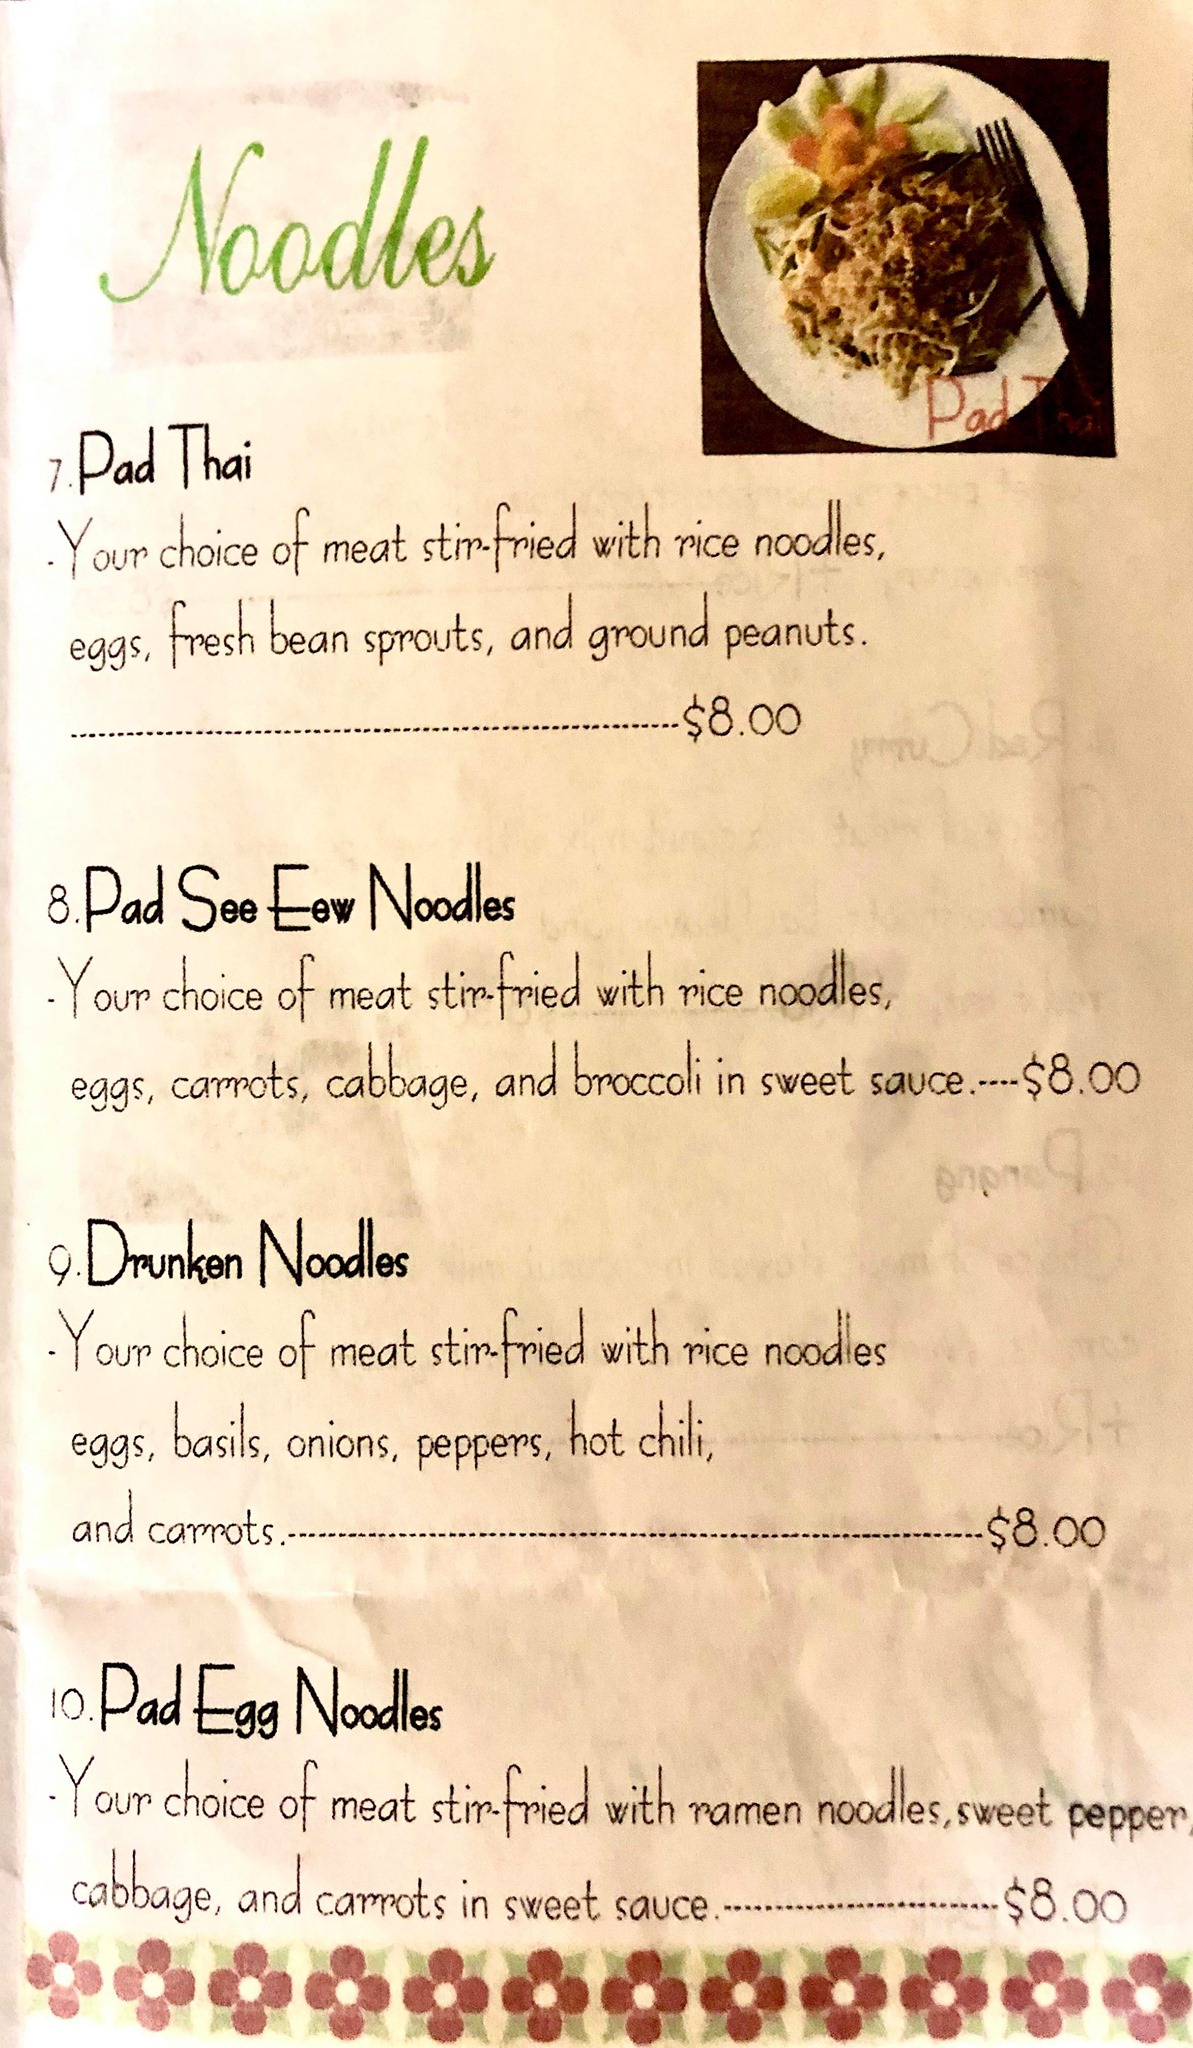 Noodles
Pad Thai
7. Pad Thai
-Your choice of meat stir-fried with rice noodles,
eggs, fresh bean sprouts, and ground peanuts.
----------------------------------------------------------$8.00
8. Pad See Eew Noodles
-Your choice of meat stir-fried with rice noodles,
eggs, carrots, cabbage, and broccoli in sweet sauce.----$8.00
9. Drunken Noodles
-Your choice of meat stir-fried with rice noodles
eggs, basils, onions, peppers, hot chili,
and carrots.------------------------------------------------------------------$8.00
10. Pad Egg Noodles
-Your choice of meat stir-fried with ramen noodles, sweet pepper,
cabbage, and carrots in sweet sauce.--------------------------$8.00